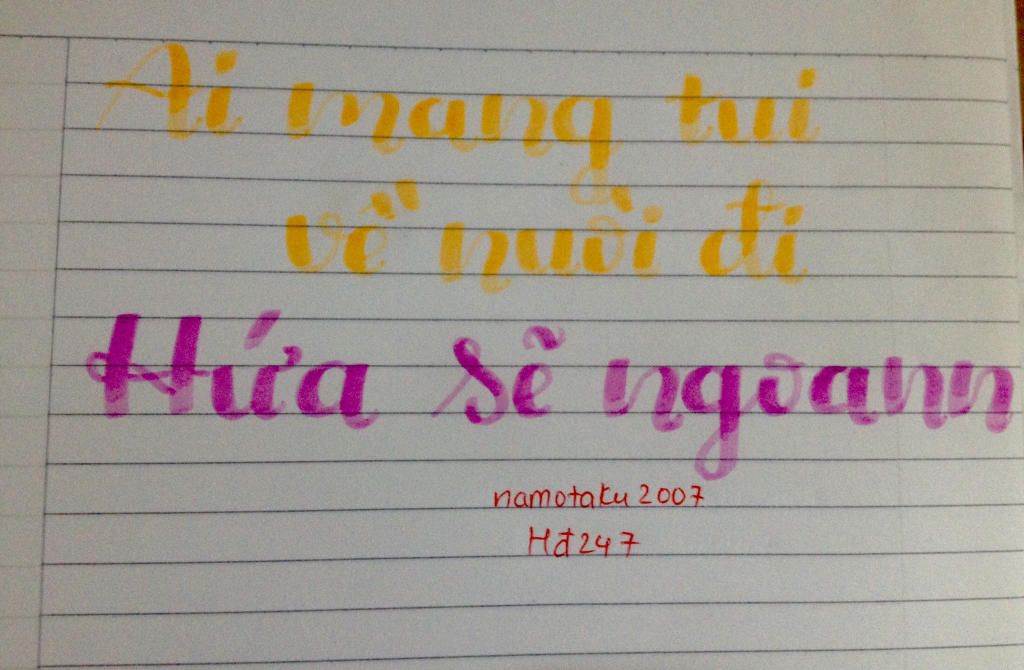 Ai mang tui
về nuôi đi
Hứa sẽ ngoann
namotaku2007
Hđ247